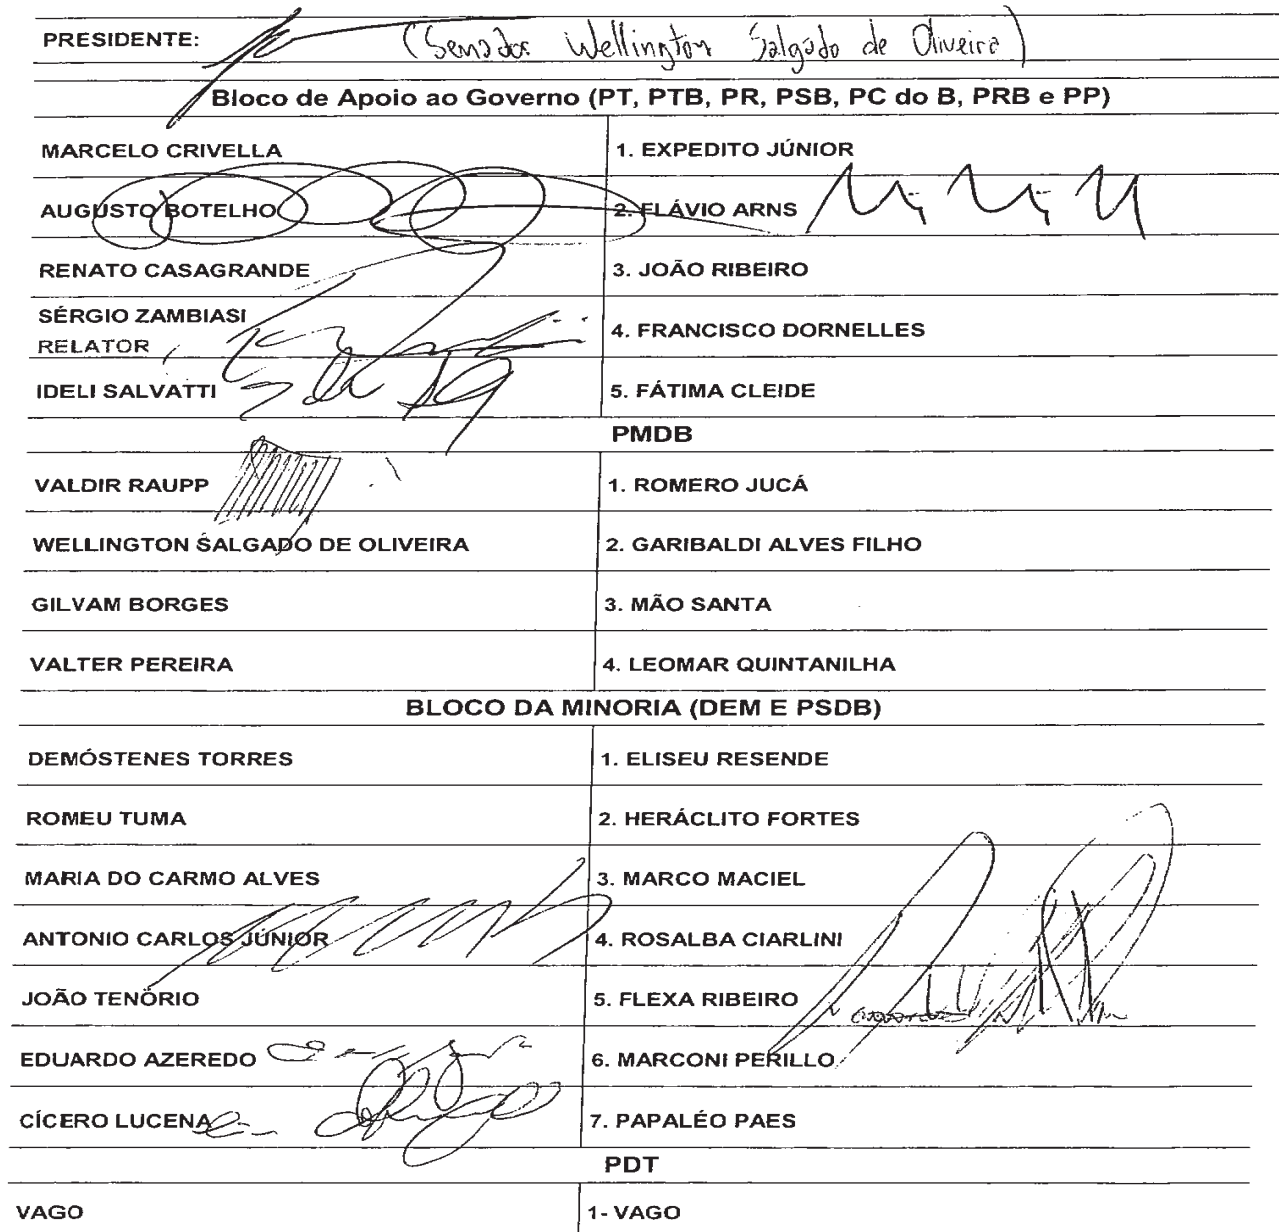 PRESIDENTE: (Senador Wellington Salgado de Oliveira)
Bloco de Apoio ao Governo (PT, PTB, PR, PSB, PC do B, PRB e PP)
MARCELO CRIVELLA 1. EXPEDITO JÚNIOR
AUGUSTO BOTELHO 2. FLÁVIO ARNS
RENATO CASAGRANDE 3. JOÃO RIBEIRO
SÉRGIO ZAMBIASI
RELATOR 4. FRANCISCO DORNELLES
IDELI SALVATTI 5. FÁTIMA CLEIDE
PMDB
VALDIR RAUPP 1. ROMERO JUCÁ
WELLINGTON SALGADO DE OLIVEIRA 2. GARIBALDI ALVES FILHO
GILVAM BORGES 3. MÃO SANTA
VALTER PEREIRA 4. LEOMAR QUINTANILHA
BLOCO DA MINORIA (DEM E PSDB)
DEMÓSTENES TORRES 1. ELISEU RESENDE
ROMEU TUMA 2. HERÁCLITO FORTES
MARIA DO CARMO ALVES 3. MARCO MACIEL
ANTONIO CARLOS JÚNIOR 4. ROSALBA CIARLINI
JOÃO TENÓRIO 5. FLEXA RIBEIRO
EDUARDO AZEREDO 6. MARCONI PERILLO
CÍCERO LUCENA 7. PAPALÉO PAES
PDT
VAGO 1- VAGO